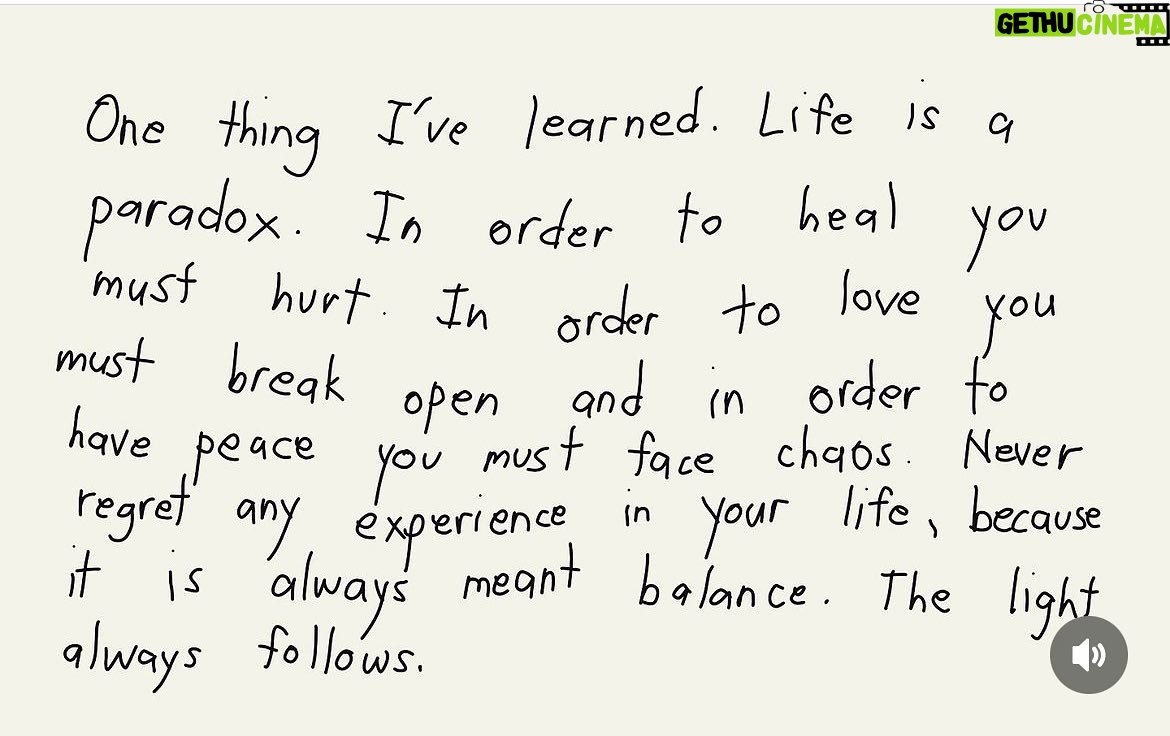 GETHU CINEMA
One thing I've learned. Life is a
paradox. In order to heal you
must hurt. In order to love you
must break open and in order to
have peace you must face chaos. Never
regret any experience in your life, because
it is always meant balance. The light
always follows.